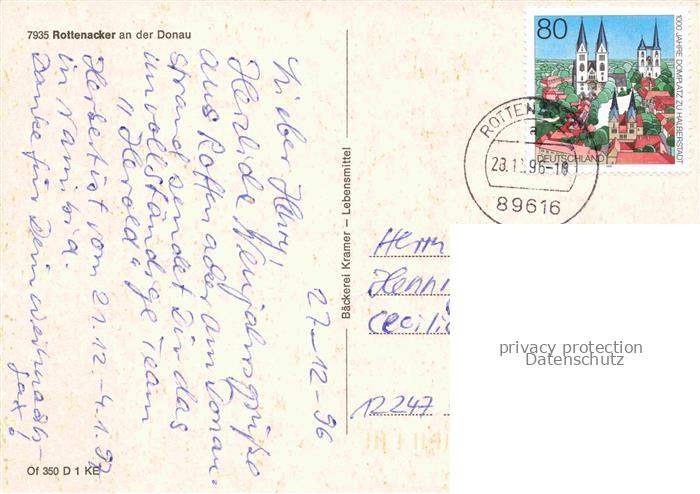 7935 Rottenacker an der Donau
27-12-96
Lieber Henry,
Herzliche Neujahrsgrüße
aus Rotten acker am Donau-
strand sendet Dir das
unvollständige Team
"Herold"
Herbert ist vom 21.12.-4.1.97
in Namibia.
Danke für Dein Weihnachts-
fax!
Of 350 D 1 KE
Bäckerei Kramer – Lebensmittel
80
1000 JAHRE DOMPLATZ ZU HALBERSTADT
DEUTSCHLAND
ROTTEN
a
28.12.96-18
89616
Herrn
Henn
Cecili
12247
privacy protection
Datenschutz